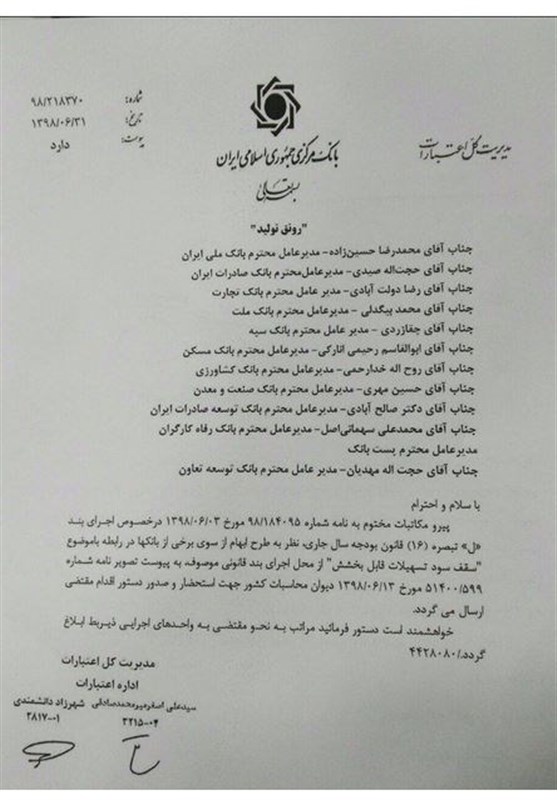 شماره: ۹۸/۲۱۸۳۷۰
تاریخ: ۱۳۹۸/۰۶/۳۱
پیوست: دارد
مدیریت کل اعتبارات
بانک مرکزی جمهوری اسلامی ایران
بسمه تعالی
"رونق تولید"
جناب آقای محمدرضا حسین‌زاده- مدیرعامل محترم بانک ملی ایران
جناب آقای حجت‌اله صیدی- مدیرعامل‌محترم بانک صادرات ایران
جناب آقای رضا دولت آبادی- مدیر عامل محترم بانک تجارت
جناب آقای محمد بیگدلی - مدیرعامل محترم بانک ملت
جناب آقای چقازردی - مدیر عامل محترم بانک سپه
جناب آقای ابوالقاسم رحیمی انارکی- مدیرعامل محترم بانک مسکن
جناب آقای روح اله خدارحمی- مدیرعامل محترم بانک کشاورزی
جناب آقای حسین مهری- مدیرعامل محترم بانک صنعت و معدن
جناب آقای دکتر صالح آبادی- مدیرعامل محترم بانک توسعه صادرات ایران
جناب آقای محمدعلی سهمانی‌اصل- مدیرعامل محترم بانک رفاه کارگران
مدیرعامل محترم پست بانک
جناب آقای حجت اله مهدیان- مدیر عامل محترم بانک توسعه تعاون
با سلام و احترام
پیرو مکاتبات مختوم به نامه شماره ۹۸/۱۸۴۰۹۵ مورخ ۱۳۹۸/۰۶/۰۳ درخصوص اجرای بند
«ل» تبصره (۱۶) قانون بودجه سال جاری، نظر به طرح ابهام از سوی برخی از بانکها در رابطه باموضوع
"سقف سود تسهیلات قابل بخشش" از محل اجرای بند قانونی موصوف، به پیوست تصویر نامه شماره
۵۱۴۰۰/۵۹۹ مورخ ۱۳۹۸/۰۶/۱۳ دیوان محاسبات کشور جهت استحضار و صدور دستور اقدام مقتضی
ارسال می گردد.
خواهشمند است دستور فرمائید مراتب به نحو مقتضی به واحدهای اجرایی ذیربط ابلاغ
گردد./۴۴۲۸۰۸۰
مدیریت کل اعتبارات
اداره اعتبارات
سیدعلی اصغر میرمحمدصادقی شهرزاد دانشمندی
۳۲۱۵-۰۴ ۲۸۱۷-۰۱